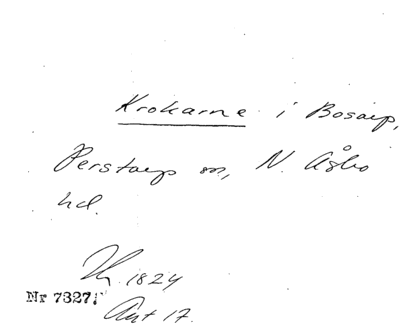 Krokarne i Bosarp,
Perstorp sn, N. Åsbo
hd.
1824
Nr 7327.
Ant 17.